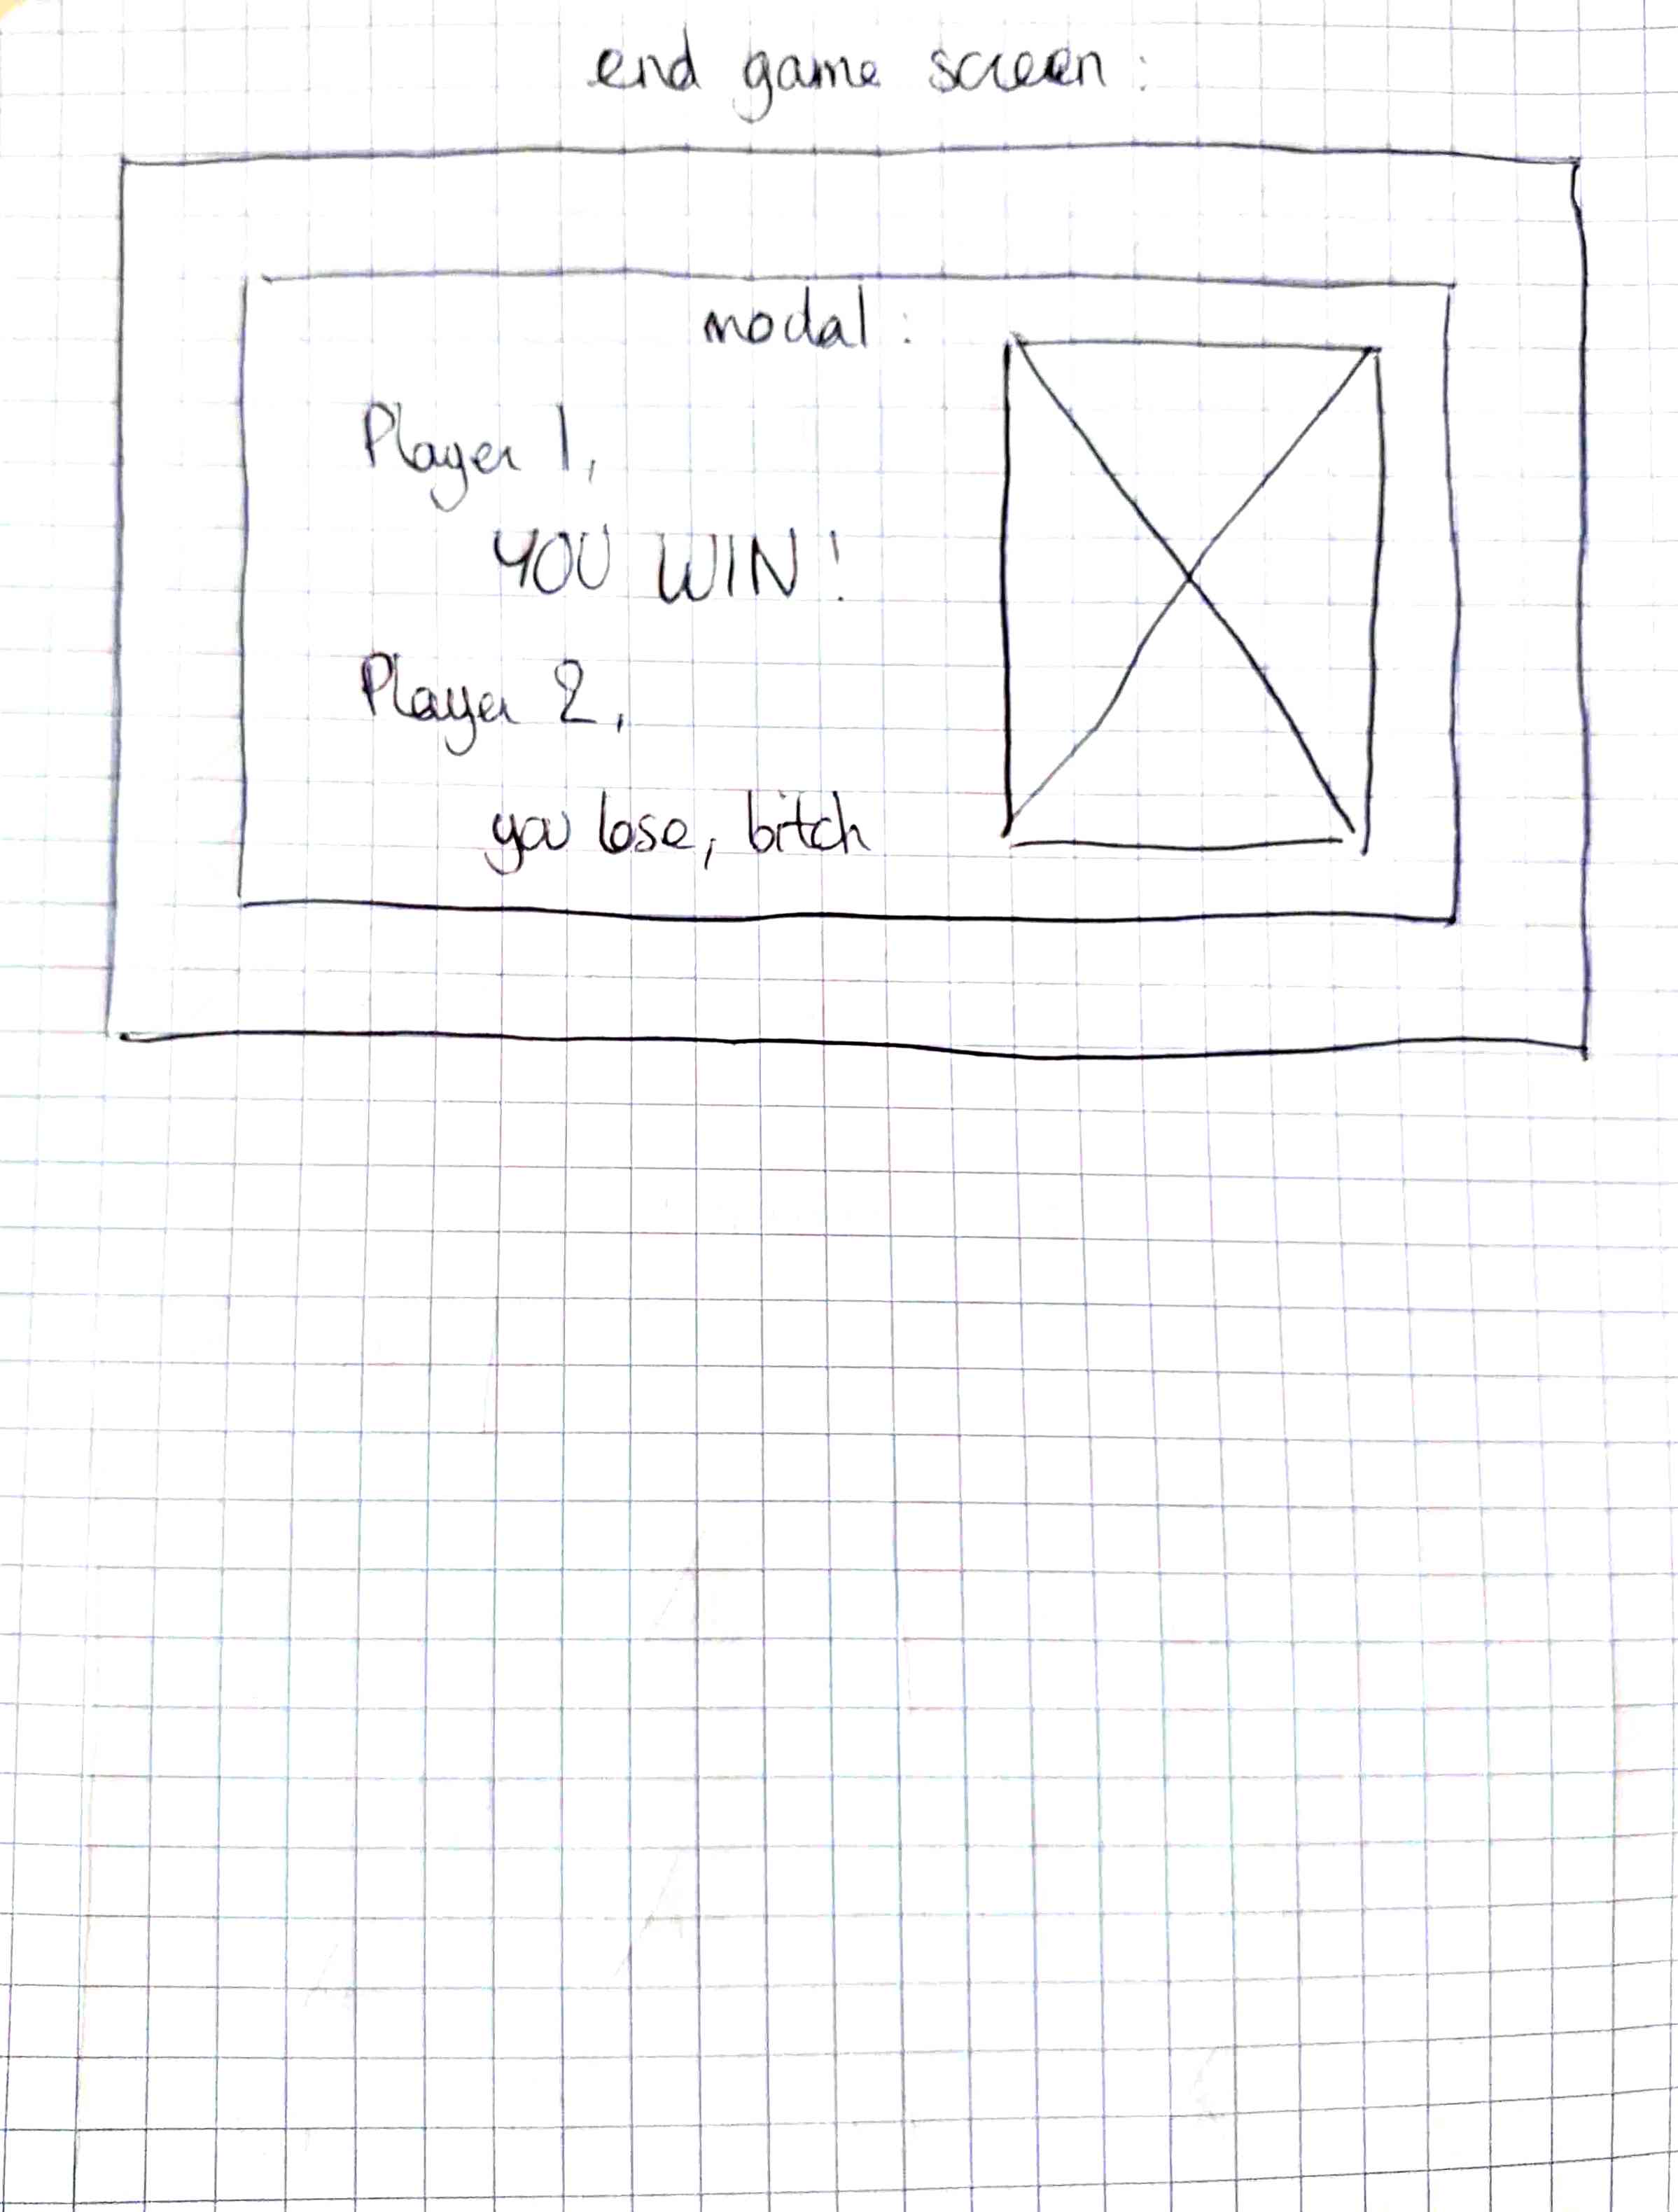 end game screen:
modal:
Player 1,
YOU WIN!
Player 2,
you lose, bitch